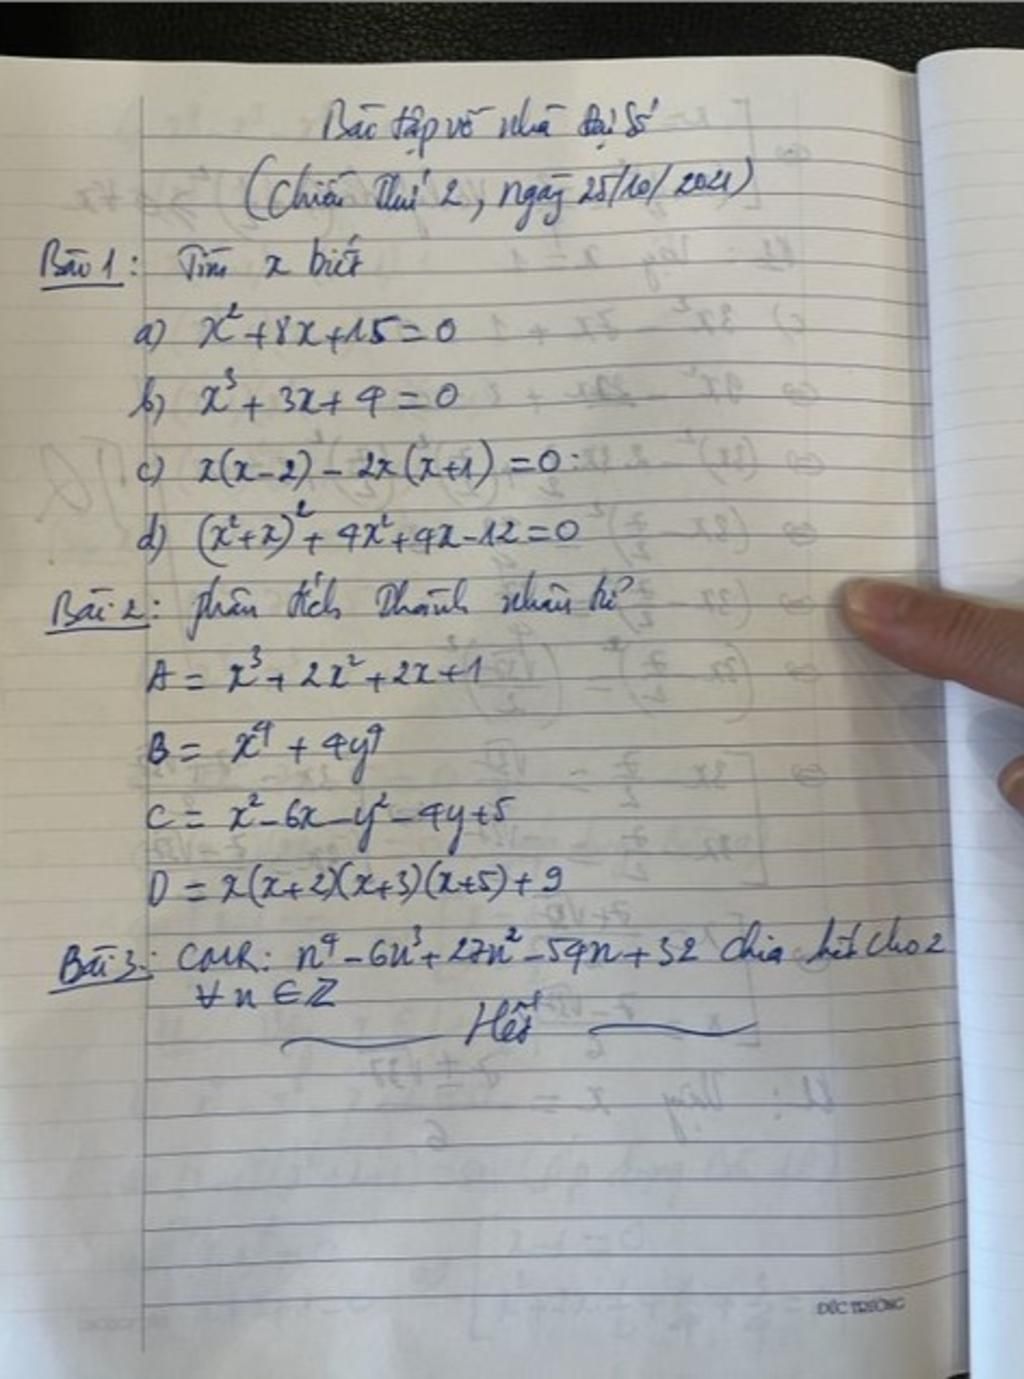 Bài tập về nhà Đại Số
(Chiều Thứ 2, ngày 25/10/2021)
Bài 1: Tìm x biết
a) x² + 8x + 15 = 0
b) x³ + 3x + 4 = 0
c) x(x-2) - 2x(x+1) = 0
d) (x²+x)² + 4x² + 4x - 12 = 0
Bài 2: phân tích Thành nhân tử
A = x³ + 2x² + 2x + 1
B = x⁴ + 4y⁴
C = x² - 6x - y² - 4y + 5
D = x(x+2)(x+3)(x+5) + 9
Bài 3: CMR: n⁴ - 6n³ + 27n² - 54n + 32 chia hết cho 2
∀ n ∈ Z
Hết
ĐỨC TRƯỜNG